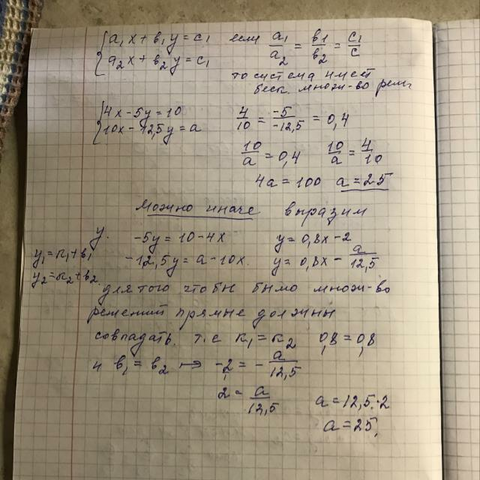 { a₁x + b₁y = c₁ если a₁/a₂ = b1/b₂ = c₁/c
a₂x + b₂y = c₁
то система имеет
беск. множ-во реш.
{ 4x - 5y = 10 4/10 = -5/-12,5 = 0,4
10x - 12,5y = a
10/a = 0,4 10/a = 4/10
4a = 100 a = 25
можно иначе выразим
y.
-5y = 10 - 4x y = 0,8x - 2
y₁ = к₁ + b₁
-12,5y = a - 10x. y = 0,8x - a/12,5
y₂ = к₂ + b₂
для того чтобы было множ-во
решений прямые должны
совпадать. т.е к₁ = к₂ 0,8 = 0,8
и b₁ = b₂ → -2 = - a/12,5
2 = a/12,5 a = 12,5·2
a = 25.